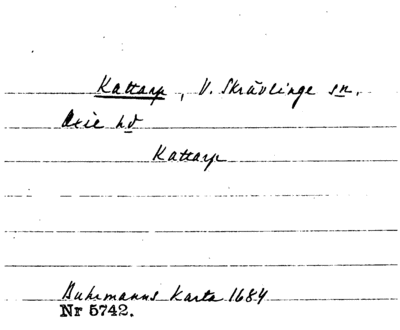 Kattarp, V. Skrävlinge sn.
Oxie hd
Kattarp
Buhrmanns Karta 1684
Nr 5742.